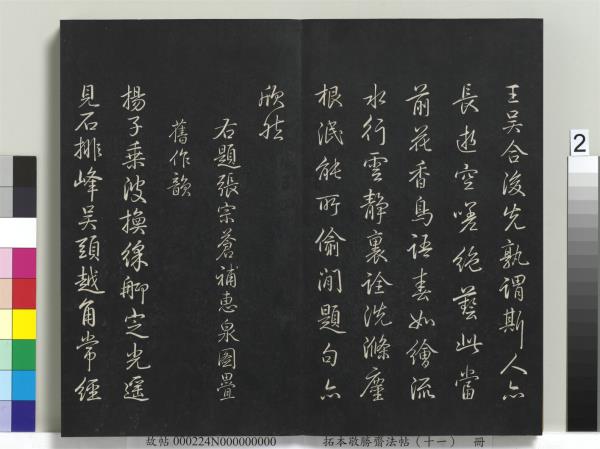 王吳合後先孰謂斯人亦
長逝空嗟絕藝此當
前花香鳥語春如繪流
水行雲靜裏詮洗滌塵
根泯能所偷閒題句亦
欣然
右題張宗蒼補惠泉圖疊
舊作韻
揚子乘波換綵艑定光遥
見石排峰吳頭越角常經
2
故帖 000224N000000000 拓本敬勝齋法帖(十一) 冊